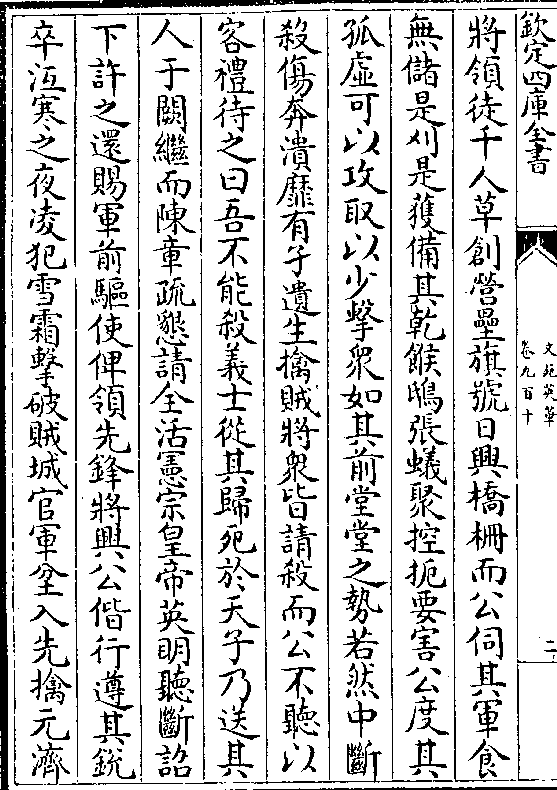 欽定四庫全書
文苑英華
卷九百十
二
將領徒千人草創營壘旗號日興橋柵而公伺其軍食
無儲是刈是獲備其乾餱鴟張蟻聚控扼要害公度其
孤虛可以攻取以少擊衆如其前堂堂之勢若然中斷
殺傷奔潰靡有孑遺生擒賊將衆皆請殺而公不聽以
客禮待之曰吾不能殺義士從其歸死於天子乃送其
人于闕繼而陳章疏懇請全活憲宗皇帝英明聽斷詔
下許之還賜軍前驅使俾領先鋒將與公偕行遵其銳
卒沍寒之夜凌犯雪霜擊破賊城官軍坌入先擒元濟